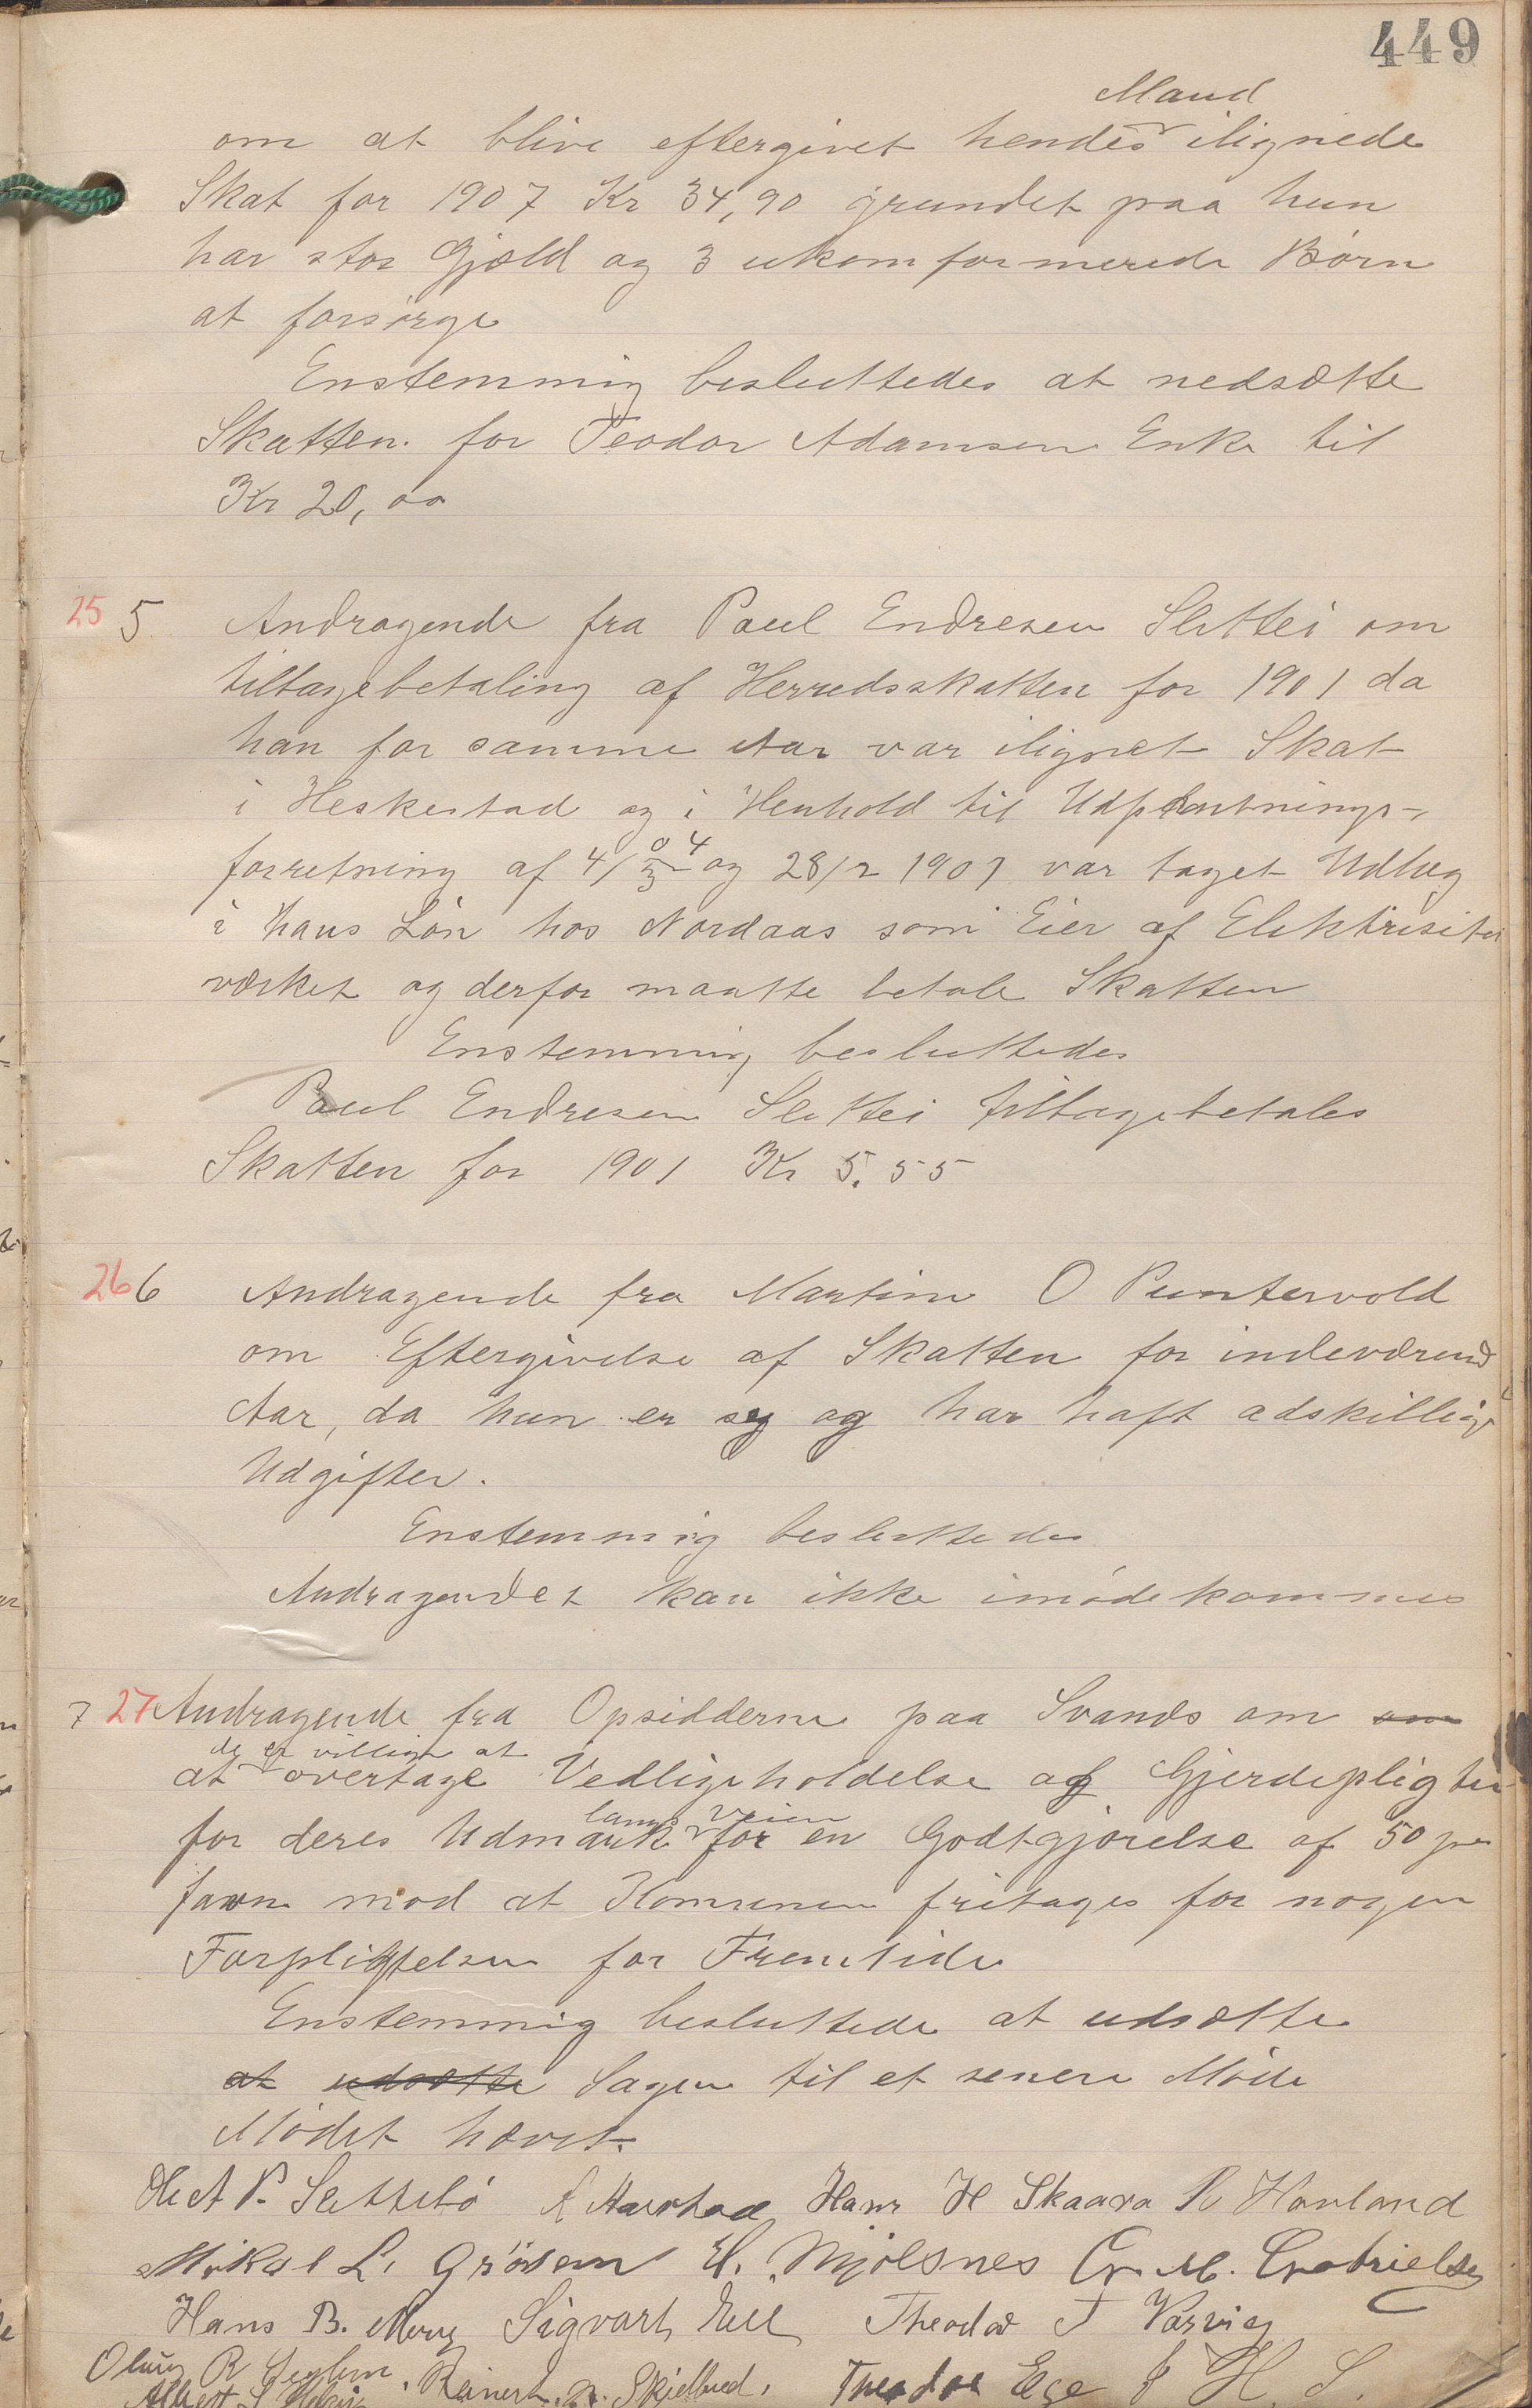 449
Mand
om at blive eftergivet hendes ilignede
Skat for 1907 Kr 34,90 grundet paa hun
har stor Gjæld og 3 ukomformerede Børn
at forsørge
Enstemmig besluttedes at nedsætte
Skatten for Teodor Adamsen Enke til
Kr 20,00
25 5 Andragende fra Paul Endresen Slettei om
tilbagebetaling af Herredsskatten for 1901 da
han for samme Aar var ilignet Skat
i Heskestad og i Henhold til Udpantnings-
forretning af 4/3 04 og 28/2 1907 var taget Udlæg
i hans Løn hos Nordaas som Eier af Elektrisitets
værket og derfor maatte betale Skatten
Enstemmig besluttedes
Paul Endresen Slettei tilbagebetales
Skatten for 1901 Kr 5.55
26 6 Andragende fra Martine O Puntervold
om Eftergivelse af Skatten for indeværende
Aar, da hun er syg og har haft adskillige
Udgifter.
Enstemmig besluttedes
Andragendet kan ikke imødekommes
7 27 Andragende fra Opsidderne paa Svands om om
de er villige at
at overtage Vedligeholdelse af Gjerdepligten
langs Veien
for deres Udmark for en Godtgjørelse af 50 pr
favn mod at Komunen fritages for nogen
Forpligtelse for Fremtiden
Enstemmig besluttede at udsætte
at udsætte Sagen til et senere Møde
Mødet hævet.
P. Slettebø Hans H Skaara R Hovland
Mikal L. Grøsem H. Mjølsnes M. Gabrielsen
Hans B. Sigvart Theodor T Varvig
Oluf R Reinert Skjelbred. Theodor Ege H. S.
Albert S